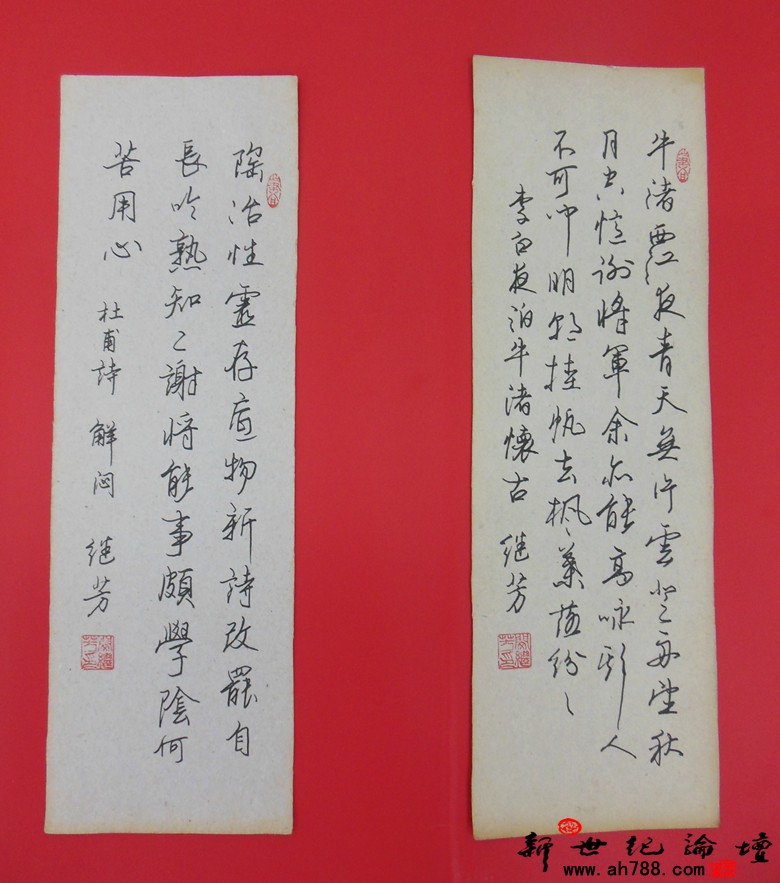 牛渚西江夜青天無片雲登舟望秋
月空憶謝將軍余亦能高咏斯人
不可闻明朝挂帆去枫葉落纷〻
李白夜泊牛渚懷古 继芳
陶冶性靈存底物新詩改罷自
長吟熟知二謝將能事頗學陰何
苦用心 杜甫詩 解闷 继芳
新世纪論壇
www.ah788.com